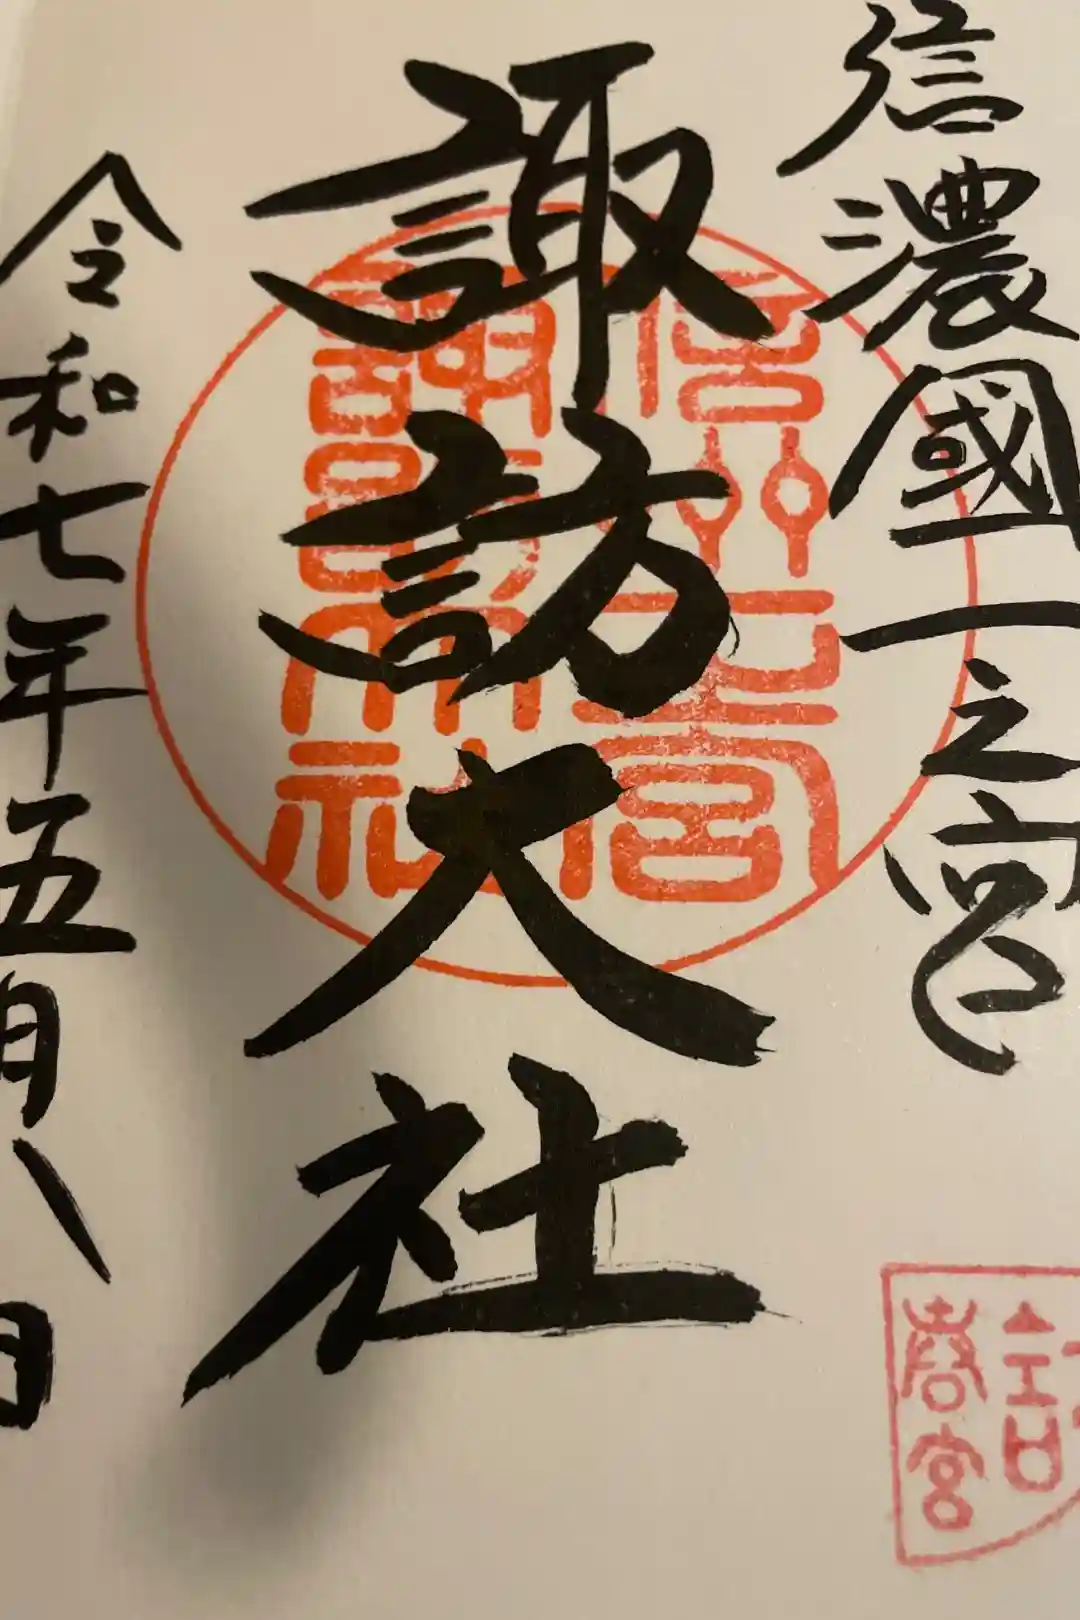 信濃國一之宮
諏訪大社
令和七年五月八日
信州一之宮
諏訪大社
春宮